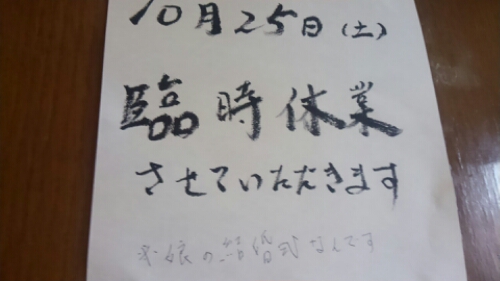 10月25日(土)
臨時休業
させていただきます
娘の結婚式なんです